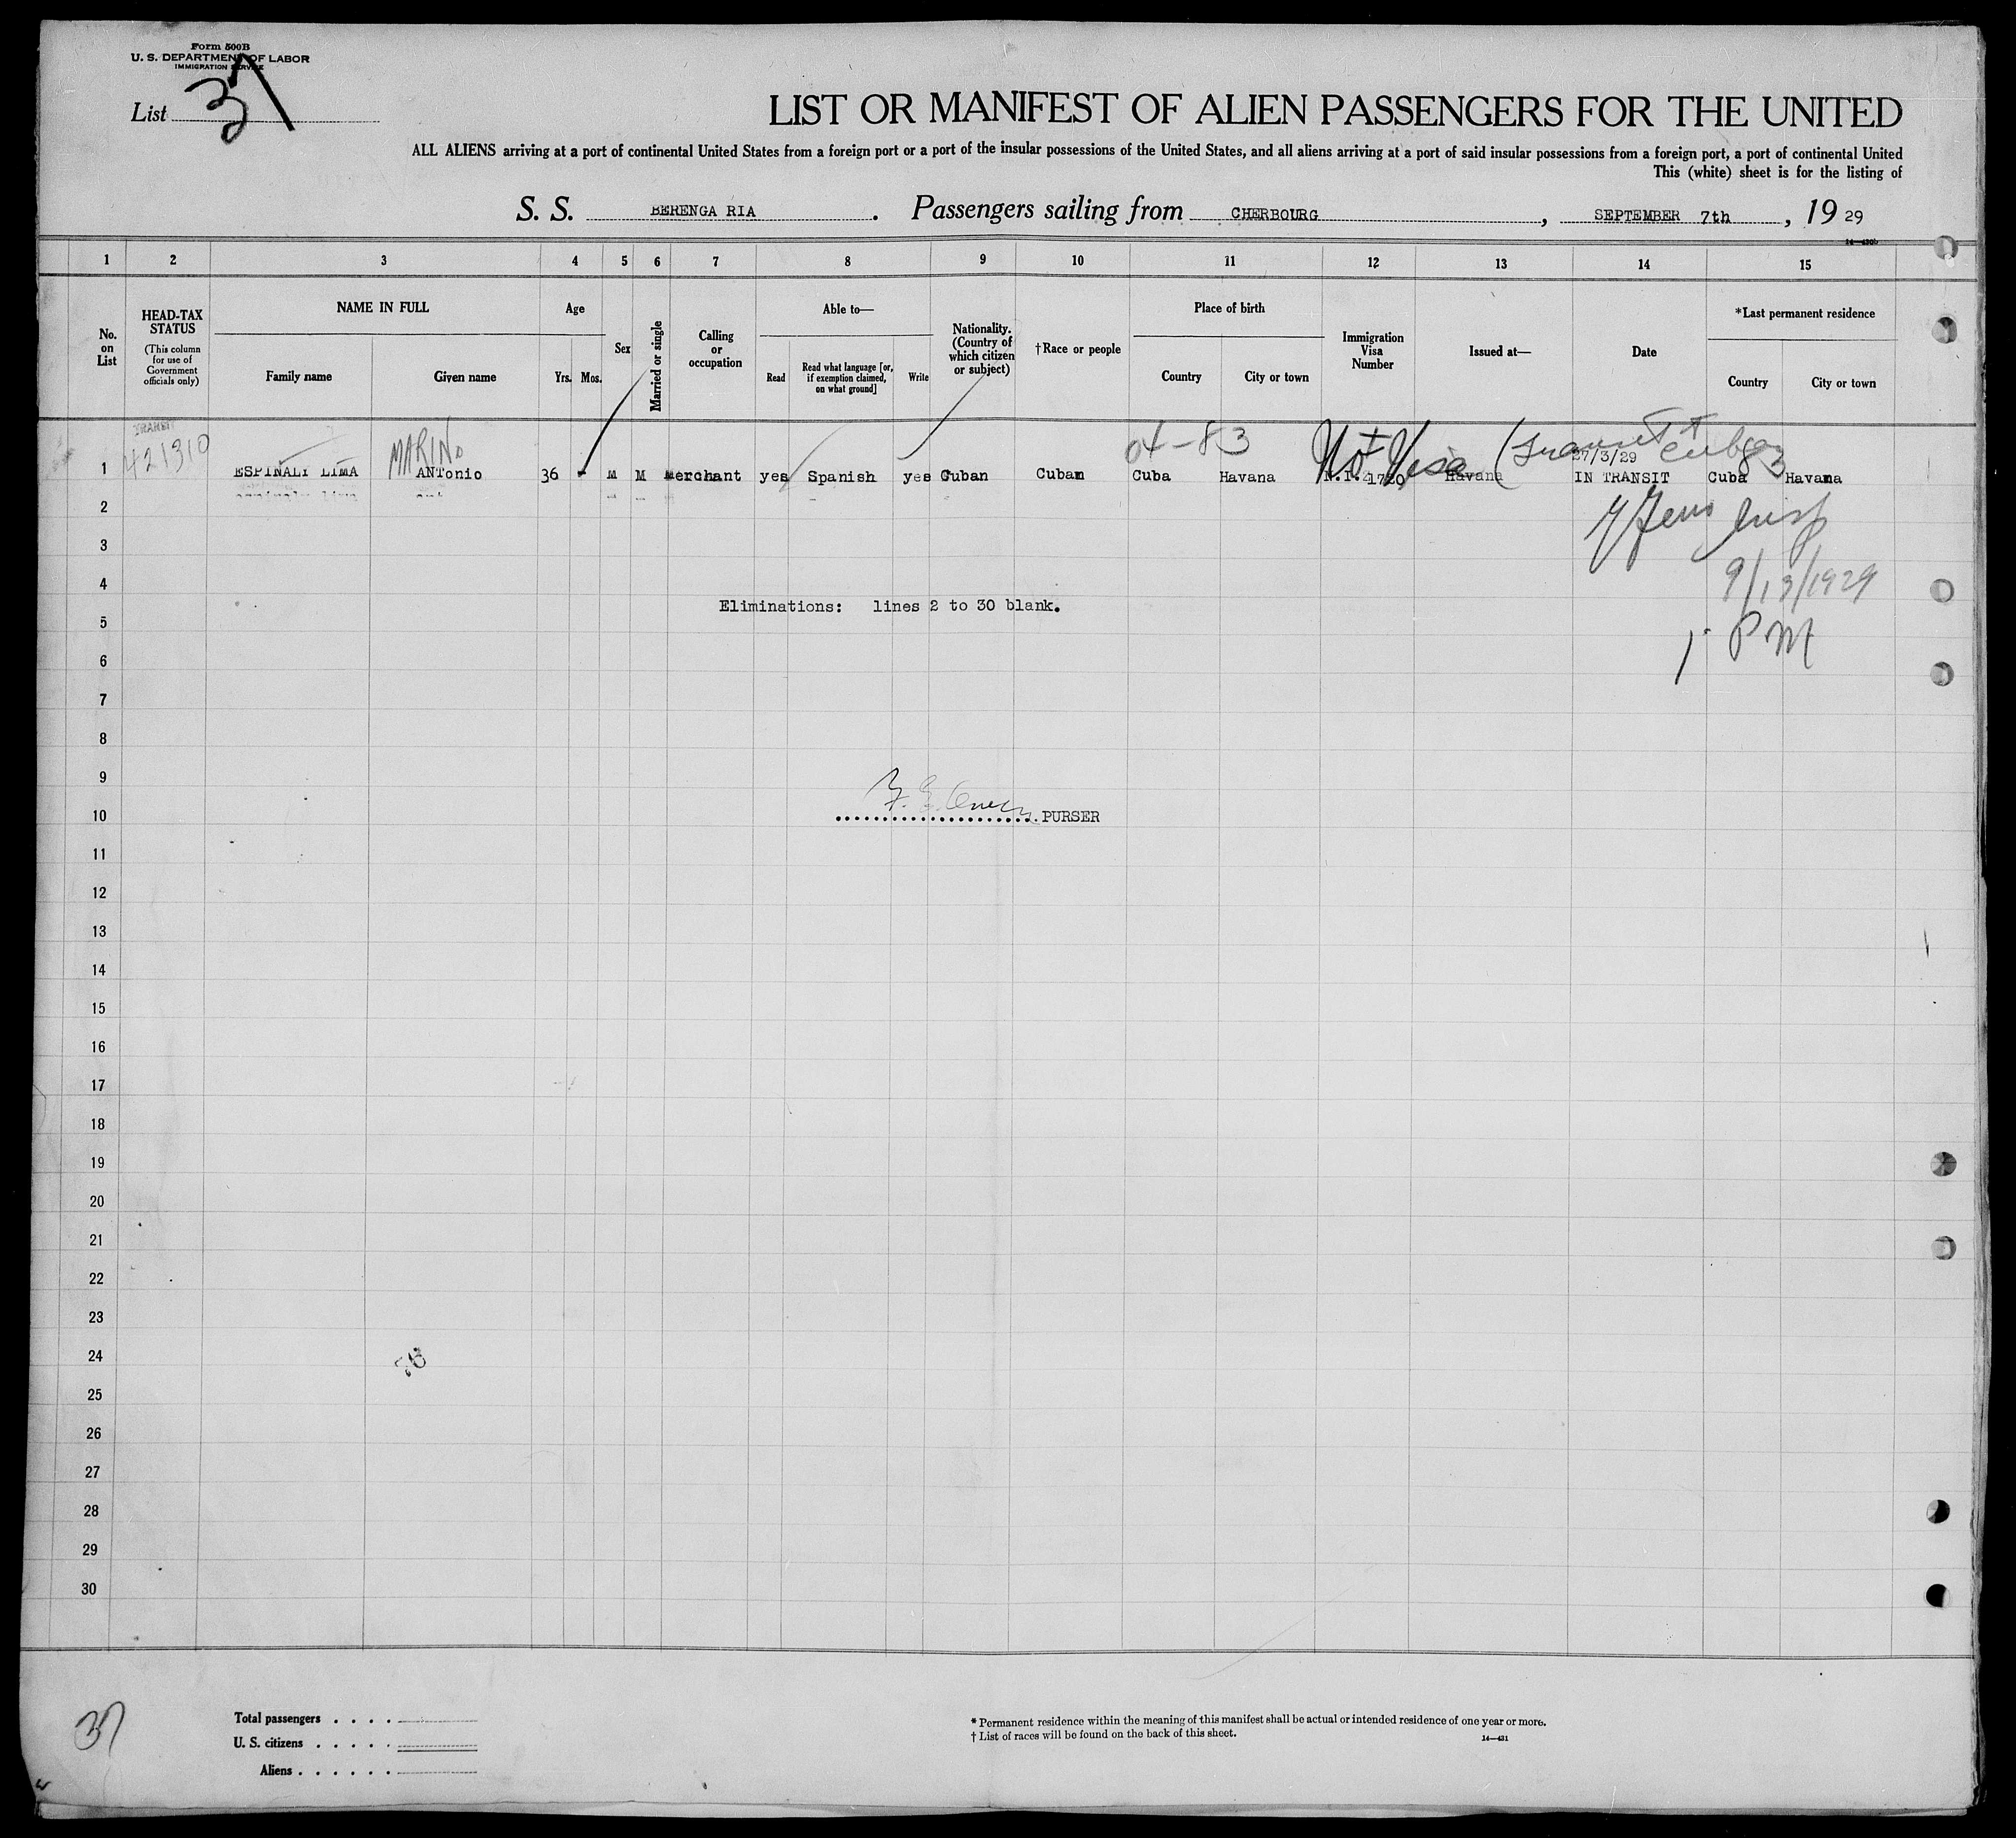 Form 500B
U. S. DEPARTMENT OF LABOR
IMMIGRATION SERVICE
List 37
LIST OR MANIFEST OF ALIEN PASSENGERS FOR THE UNITED
ALL ALIENS arriving at a port of continental United States from a foreign port or a port of the insular possessions of the United States, and all aliens arriving at a port of said insular possessions from a foreign port, a port of continental United
This (white) sheet is for the listing of
S. S. BERENGA RIA . Passengers sailing from CHERBOURG , SEPTEMBER 7th , 19 29
14—430b
1 2 3 4 5 6 7 8 9 10 11 12 13 14 15
No. on List
HEAD-TAX STATUS
(This column for use of Government officials only)
NAME IN FULL
Family name Given name
Age
Yrs. Mos.
Sex
Married or single
Calling or occupation
Able to—
Read
Read what language [or, if exemption claimed, on what ground]
Write
Nationality. (Country of which citizen or subject)
†Race or people
Place of birth
Country City or town
Immigration Visa Number
Issued at—
Date
*Last permanent residence
Country City or town
TRANSIT
421310
MARINO
04-83
Not Visa (Transit Cuba
27/3/29
83
1 ESPINALI LIMA ANTonio 36 - M M merchant yes Spanish yes Cuban Cuban Cuba Havana Havana IN TRANSIT Cuba Havana
2
Insp
3
4
9/13/1929
Eliminations: lines 2 to 30 blank.
5
1 PM
6
7
8
9
10 PURSER
11
12
13
14
15
16
17
18
19
20
21
22
23
24
76
25
26
27
28
29
30
37
Total passengers
U. S. citizens
Aliens
* Permanent residence within the meaning of this manifest shall be actual or intended residence of one year or more.
† List of races will be found on the back of this sheet.
14—431